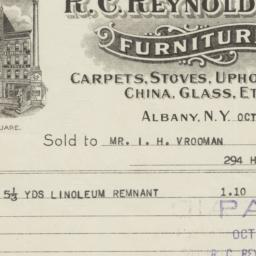 R. C. REYNOLD
FURNITUR
CARPETS, STOVES, UPHO
CHINA, GLASS, ET
ALBANY, N.Y. OCT
UARE.
Sold to MR. I. H. VROOMAN
294 H
5⅓ YDS LINOLEUM REMNANT 1.10
PA
OCT
R. C. REY